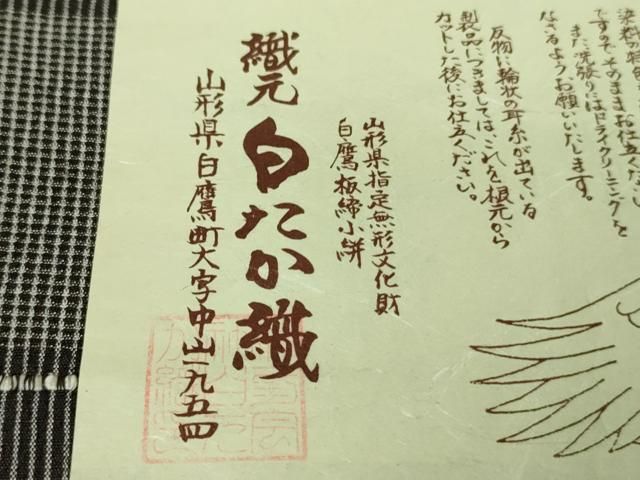 染料の特色
ですので そのままお仕立下さい
また洗張りにはドライクリーニングを
なさるよう、お願いいたします。
反物に輪状の耳糸が出ている
製品につきましては、これを根元から
カットした後にお仕立ください。
山形県指定無形文化財
白鷹板締小絣
織元 白たか織
山形県白鷹町大字中山一九五四